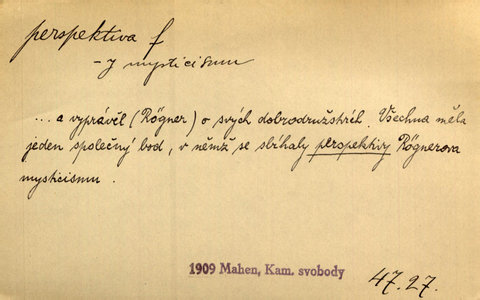 perspektiva f
-y mysticismu
... a vyprávěl (Rögner) o svých dobrodružstvích. Všechna měla
jeden společný bod, v němž se sbíhaly perspektivy Rögnerova
mysticismu.
1909 Mahen, Kam. svobody
47.27.